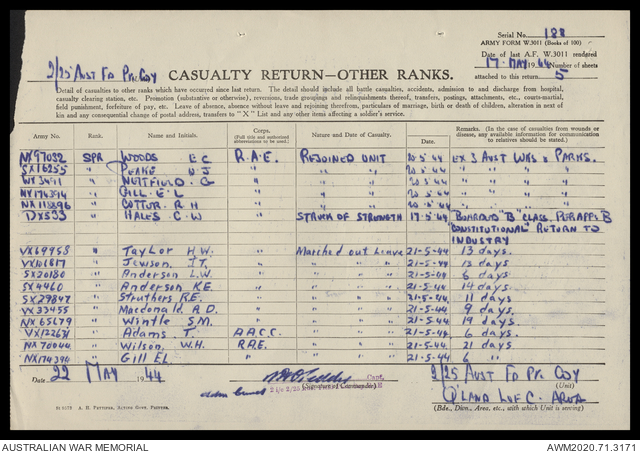 Serial No. 188
ARMY FORM W.3011 (Books of 100)
Date of last A.F. W.3011 rendered
17 · MAY 1944 Number of sheets
attached to this return 5
2/25 AUST FD PK COY
CASUALTY RETURN—OTHER RANKS.
Detail of casualties to other ranks which have occurred since last return. The detail should include all battle casualties, accidents, admission to and discharge from hospital,
casualty clearing station, etc. Promotion (substantive or otherwise), reversions, trade groupings and relinquishments thereof, transfers, postings, attachments, etc., courts-martial,
field punishment, forfeiture of pay, etc. Leave of absence, absence without leave and rejoining therefrom, particulars of marriage, birth or death of children, alteration in next of
kin and any consequential change of postal address, transfers to "X" List and any other items affecting a soldier's service.
Army No. Rank. Name and Initials. Corps. (Full title and authorized abbreviations to be used). Nature and Date of Casualty. Date. Remarks. (In the case of casualties from wounds or disease, any available information for communication to relatives should be stated.)
NX97032 SPR WOODS E C R.A.E. REJOINED UNIT 20-5-44 EX 3 AUST WKS & PARKS.
SX16255 " PEAKE W J " " " 20-5-44 " "
WX3491 " NUTFIELD G " " " 20-5-44 " "
NX174394 " GILL E L " " " 20-5-44 " "
NX113896 " COTTUR R H " " " 20-5-44 " "
DX533 " HALES C W " STRUCK OF STRENGTH 17-5-44 BOARDED "B" CLASS, PARA PP B
"CONSTITUTIONAL" RETURN TO
INDUSTRY
VX69958 " Taylor H.W. " Marched out Leave 21-5-44 13 days.
VX101817 " Jewson J.T. " " " 21-5-44 13 days.
SX20180 " Anderson L.W. " " " 21-5-44 6 days
SX4460 " Anderson K.E. " " " 21-5-44 14 days.
SX29847 " Struthers R.E. " " " 21-5-44 11 days
VX33455 " Macdonald A.D. " " " 21-5-44 9 days
NX65679 " Wintle S.M. " " " 21-5-44 19 days.
VX122671 " Adams T. A.A.C.C. " " 21-5-44 6 days
NX70044 " Wilson W.H. R.A.E. " " 21-5-44 21 days
NX174394 " Gill E L " " " 21-5-44 6 "
Date 22 MAY 1944
Capt.
(Signature of Commander)
2/25 AUST FD PK COY
(Unit)
Q'LAND L of C. AREA
(Bde., Divn., Area, etc., with which Unit is serving)
A. H. PETTIFER, ACTING GOVT. PRINTER.
AUSTRALIAN WAR MEMORIAL
AWM2020.71.3171